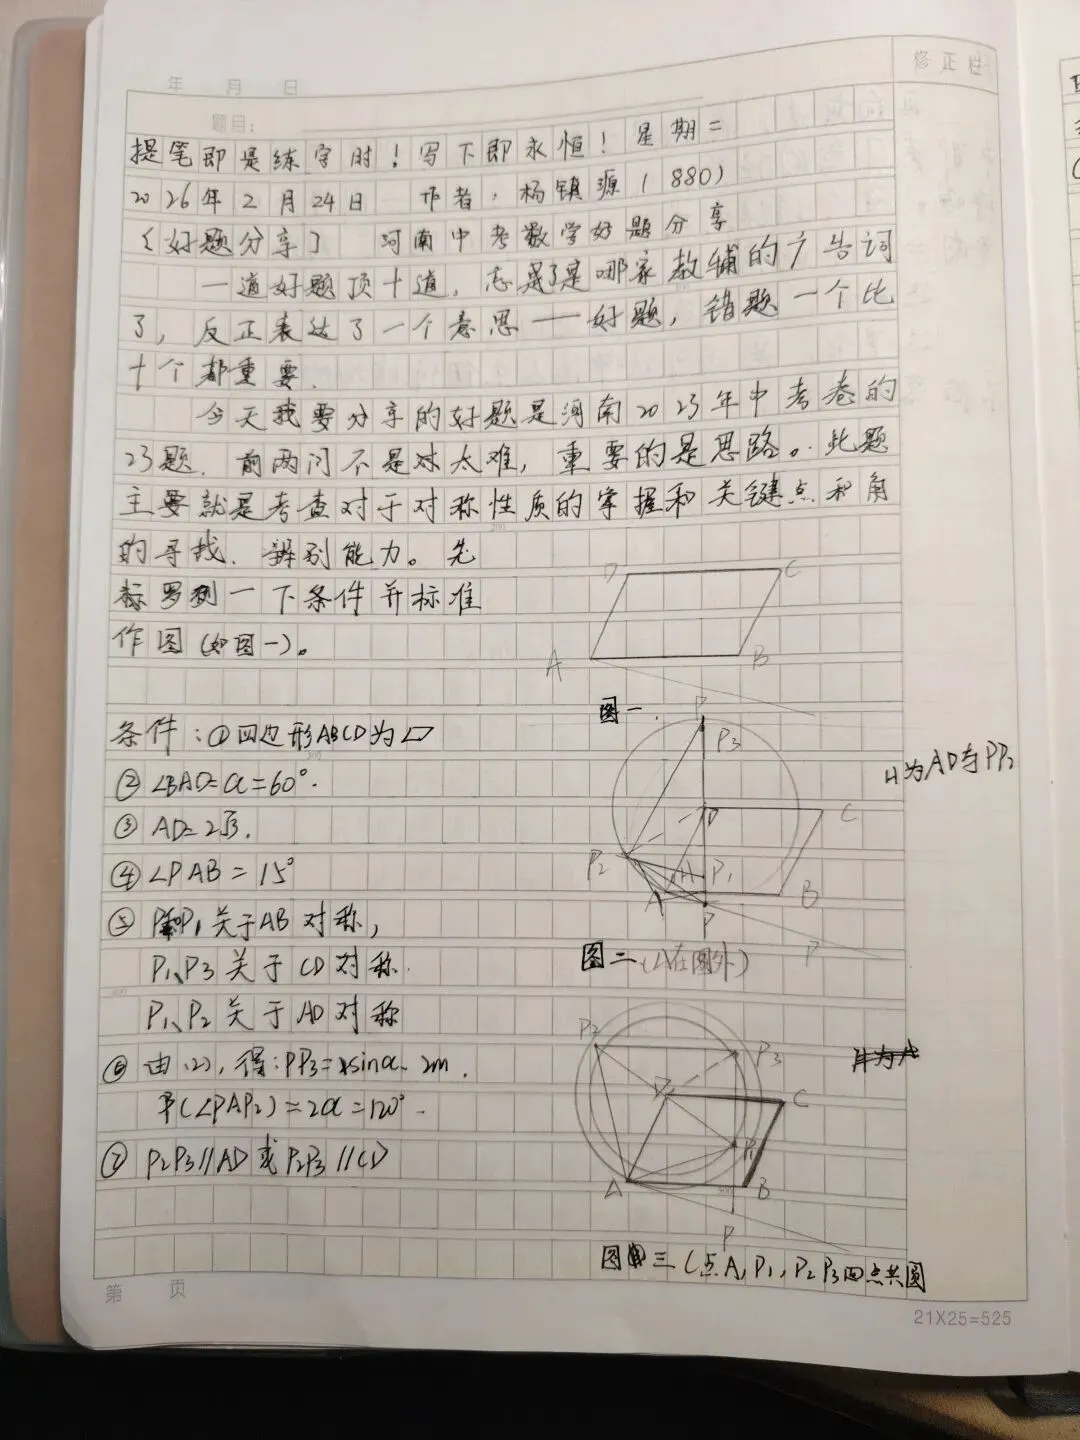 年 月 日
修正栏
题目：
提笔即是练字时！写下即永恒！星期二
2026年2月24日 作者：杨镇源（880）
《好题分享》 河南中考数学好题分享
一道好题顶十道，忘是哪家教辅的广告词
了，反正表达了一个意思——好题，错题一个比
十个都重要．
今天我要分享的好题是河南2023年中考卷的
23题．前两问不是对太难，重要的是思路。此题
主要就是考查对于对称性质的掌握和关键点和角
的寻找．辨别能力。先
罗列一下条件并标准
作图（如图一）。
D C
A B
图一．
条件：①四边形ABCD为▱
②∠BAD=α=60°．
③AD=2√3．
④∠PAB=15°
⑤P和P₁关于AB对称，
P₁、P₃关于CD对称．
P₁、P₂关于AD对称
⑥由（2），得：PP₃=sinα·2m．
（∠PAP₂）=2α=120°．
⑦P₂P₃//AD或P₂P₃//CD
P
P₃
H为AD与PP₂
D C
P₂ H P₁
A B
P P
图二（A在圆外）
P₂ P₃
D C
P₁
A B
P
图三（点A，P₁，P₂P₃四点共圆
第 页
21X25=525